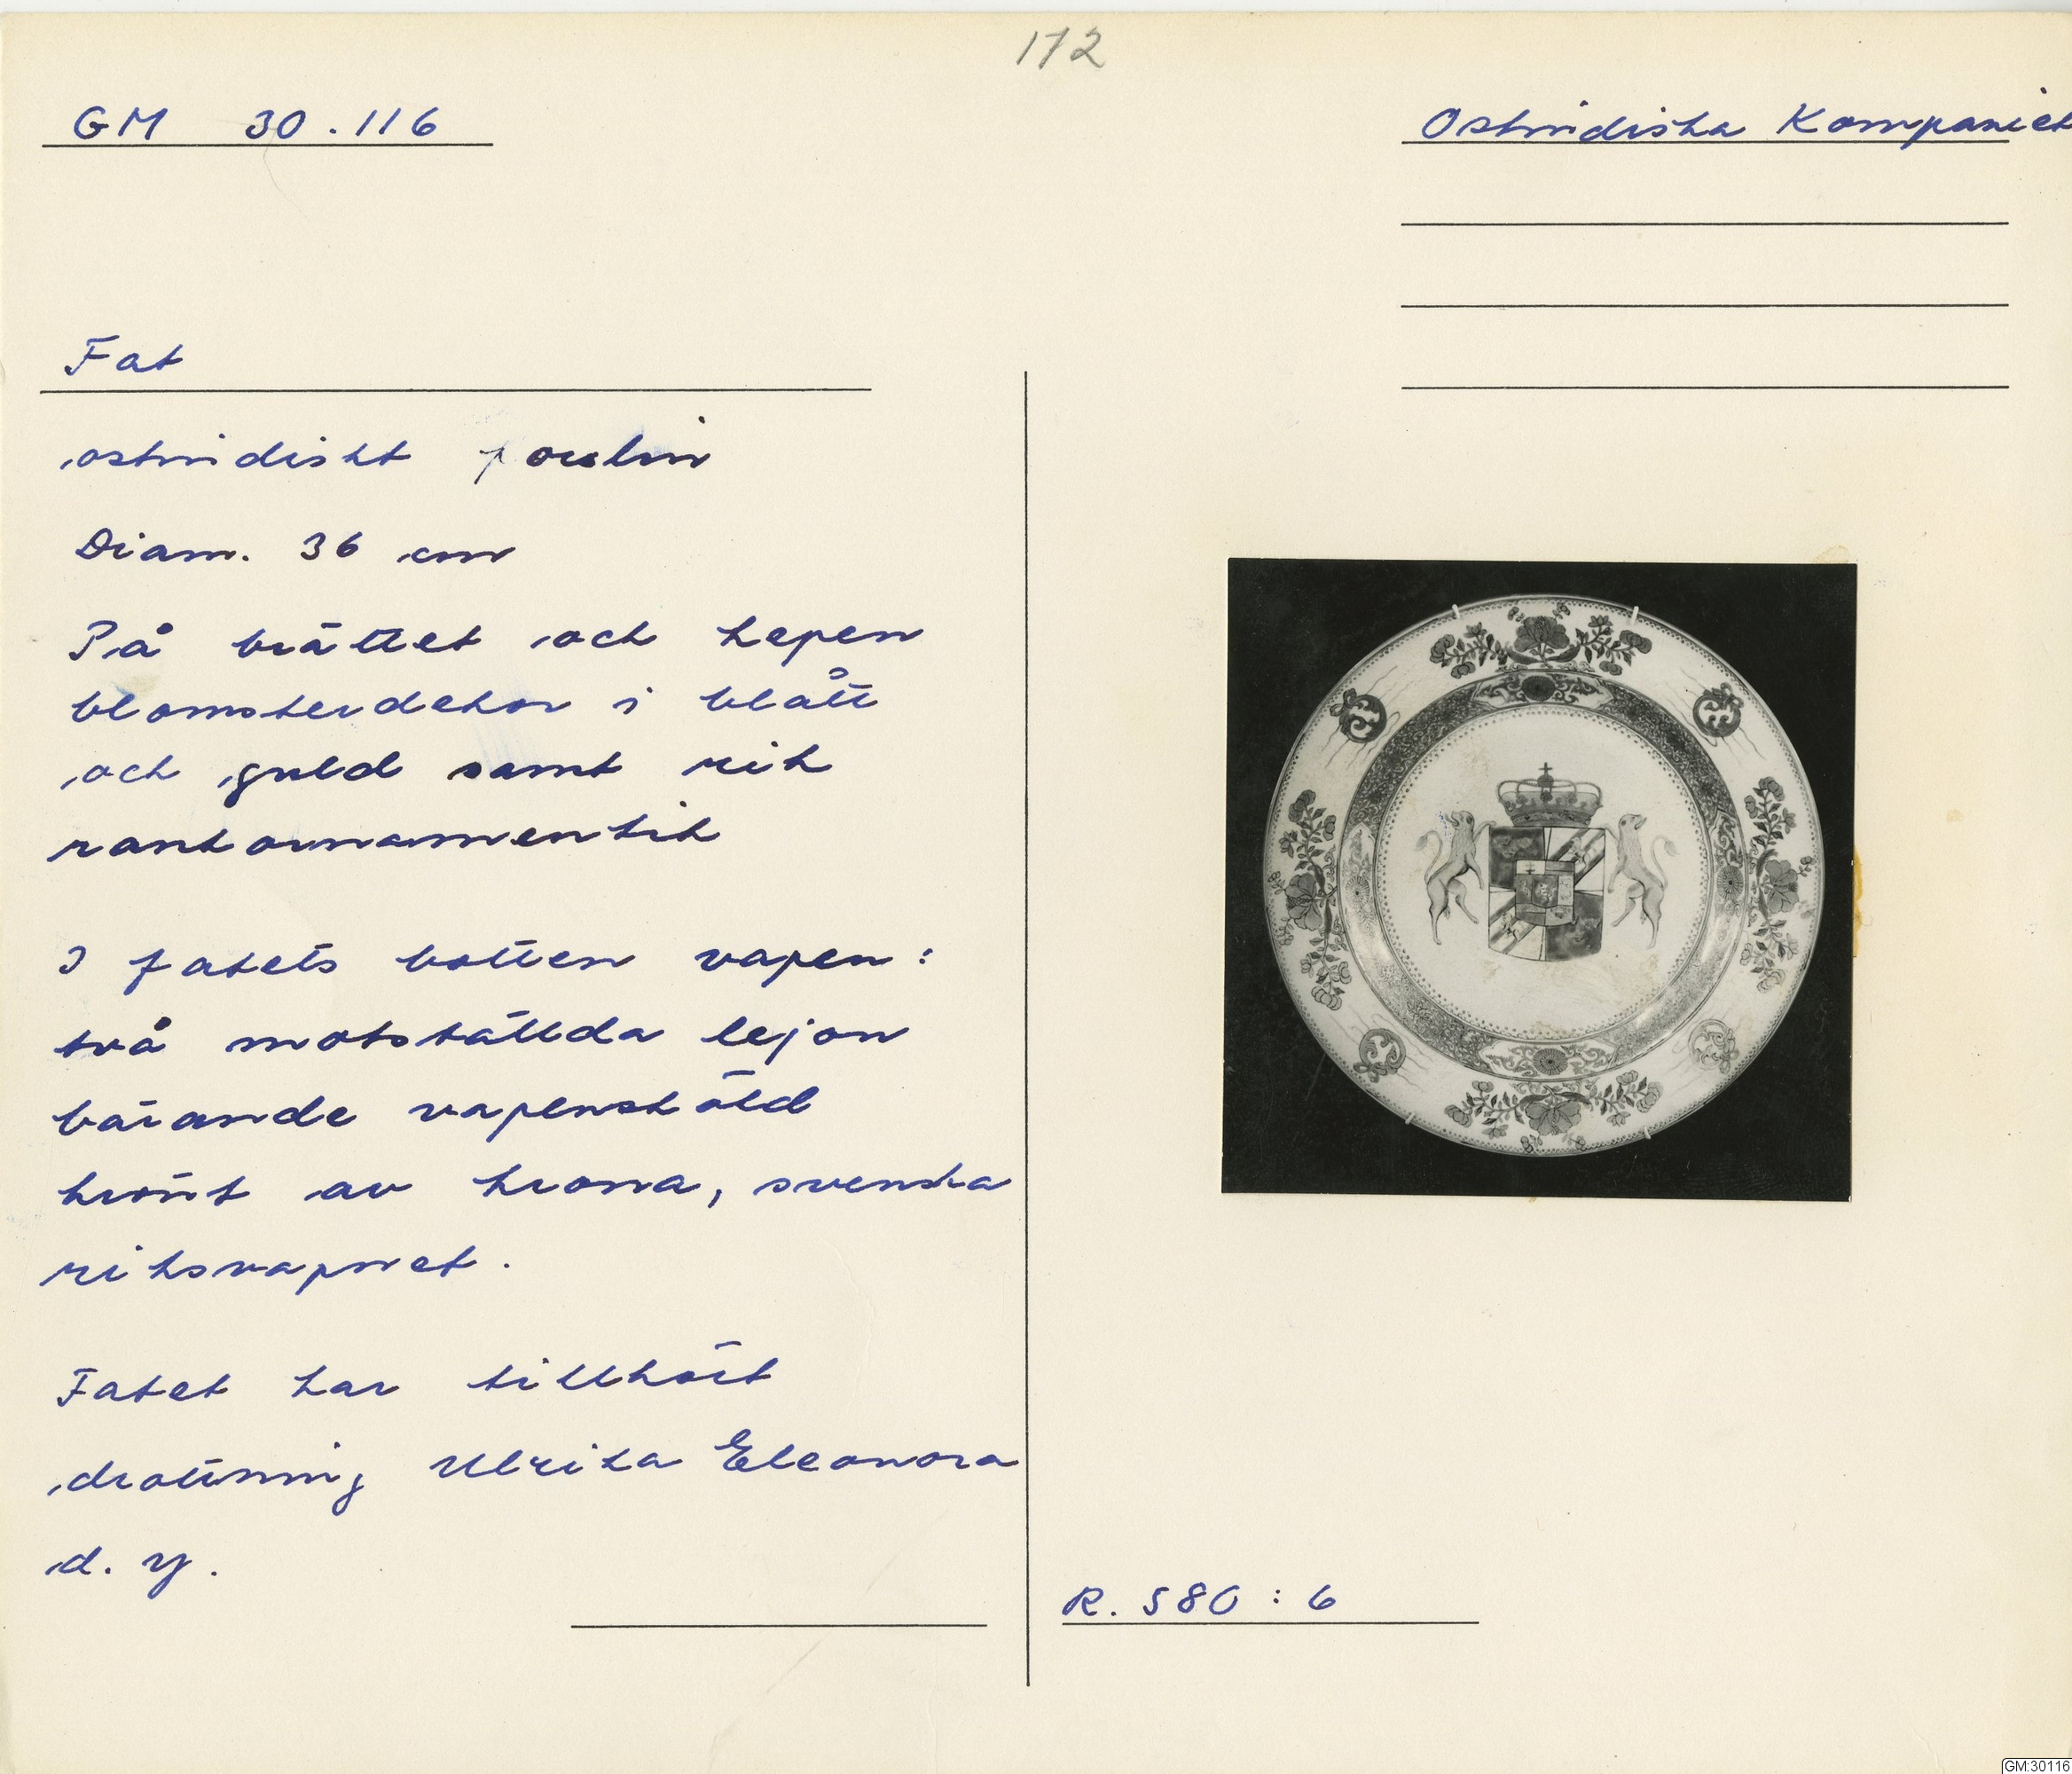 172
GM 30.116
Ostindiska Kompaniet
Fat
ostindiskt porslin
Diam. 36 cm
På brättet och kepen
blomsterdekor i blått
och guld samt rik
rankornamentik
I fatets botten vapen:
två motställda lejon
bärande vapensköld
krönt av krona, svenska
riksvapnet.
Fatet har tillhört
drottning Ulrika Eleonora
d. y.
R. 580 : 6
GM:30116